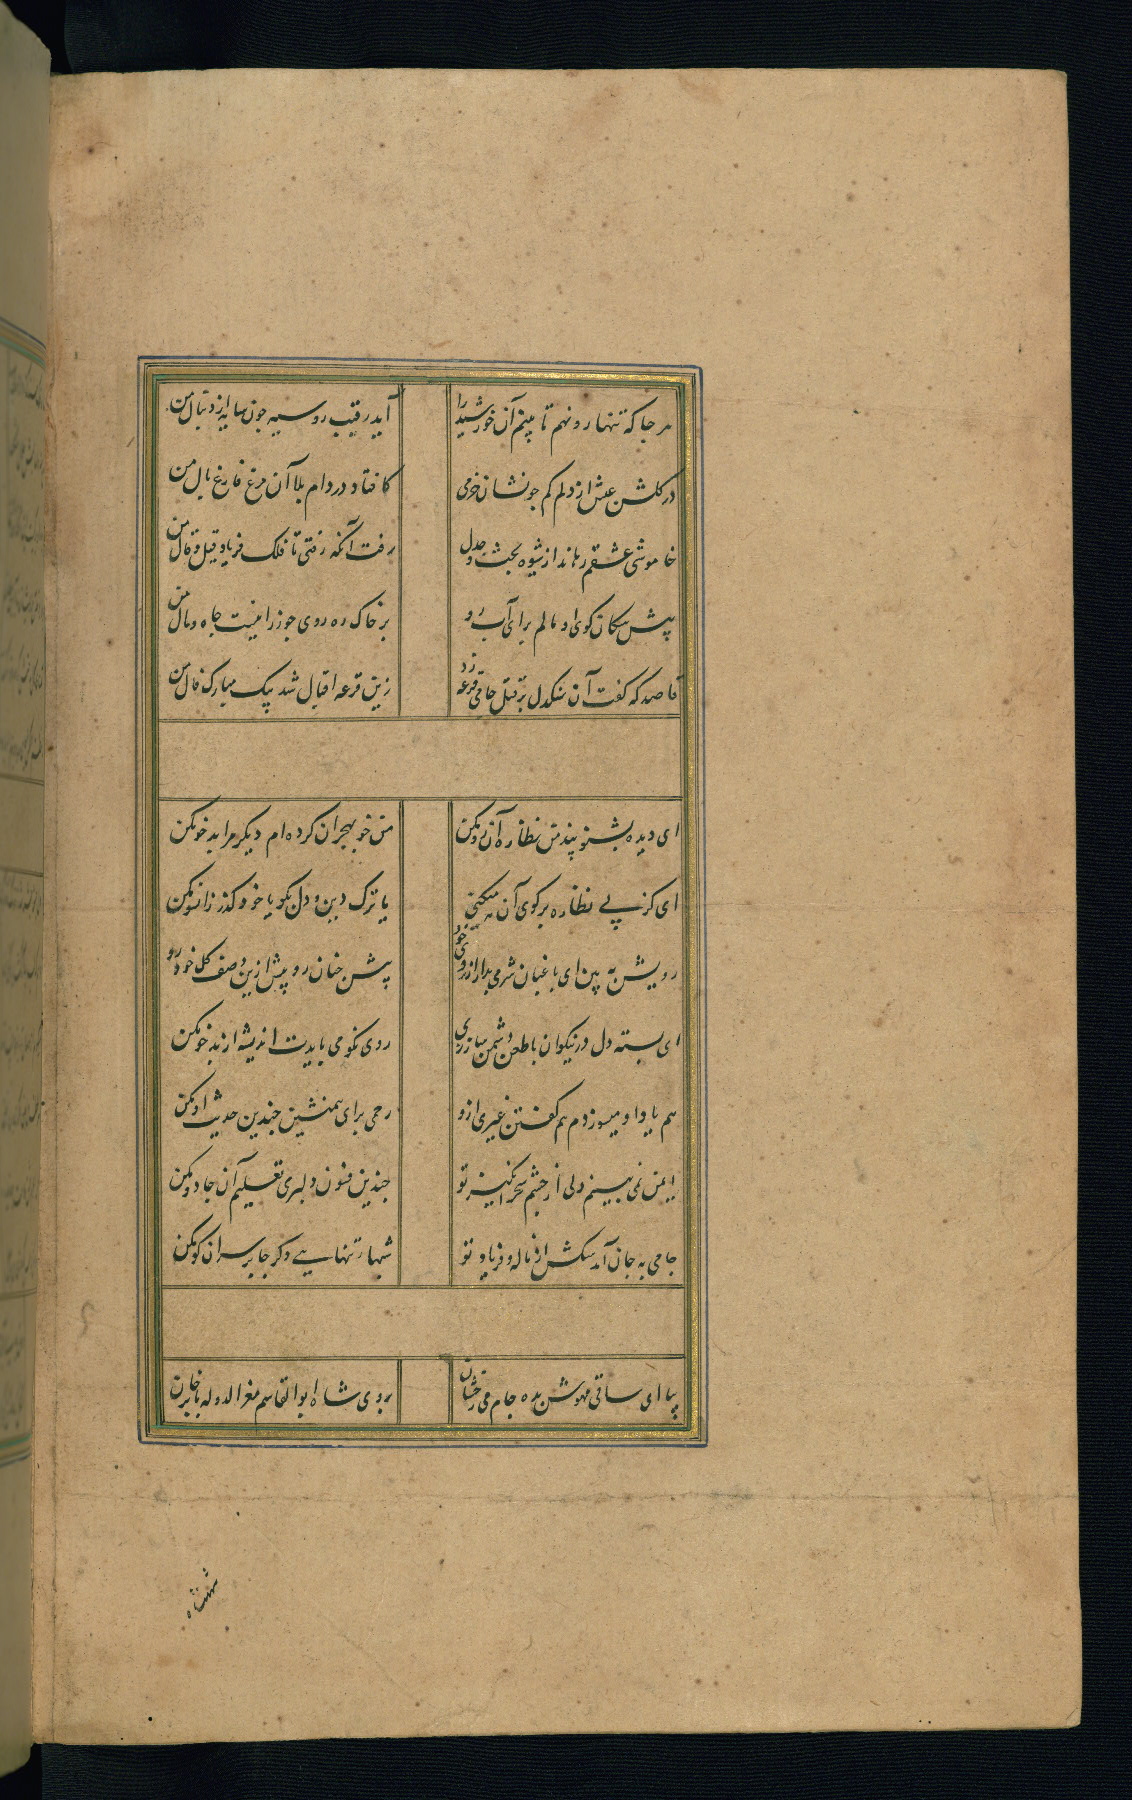 هر جا که تنها رو نهم تا بینم آن خورشید را
آید رقیب رو سیه چون سایه از دنبال من
در گلشن عیش از دلم کم جو نشان خرمی
کافتاد در دام بلا آن مرغ فارغ بال من
خاموشی عشقم رهاند از شیوه بحث و جدل
رفت آنکه رفتی تا فلک فریاد و قیل و قال من
پیش سگان کوی او مالم برای آب رو
بر خاک ره روی چو زر اینست جاه و مال من
قاصد که گفت آن سنگدل بر قتل جامی قرعه زد
زین قرعه اقبال شد پیک مبارک فال من
ای دیده بشنو پند من نظاره آن رو مکن
من خو بهجران کرده ام دیگر مرا بد خو مکن
ای کز پی نظاره بر کوی آن مه میکنی
یا ترک دین و دل بگو یا خود گذر زانسو مکن
رویش به بین ای باغبان شرمی بدار از روی خود
پیش چنان رو پیش ازین وصف گل خود رو
ای بسته دل در نیکوان با طعن دشمن ساز
روی نکو می بایدت اندیشه از بد خو مکن
هم یاد او میسوزدم هم گفتن غیری ازو
رحمی برای همنشین چندین حدیث او مکن
ایمن نمی بینم دلی از چشم سحر انگیز تو
چندین فنون دلبری تعلیم آن جادو مکن
جامی به جان آمد سگش از ناله و فریاد تو
شبها تنهایی دگر جا بر سر آن کو مکن
بیا ای ساقی مهوش بده جام می رخشان
بروی شاه ابو القاسم معز الدوله بابر خان
شهنشاه